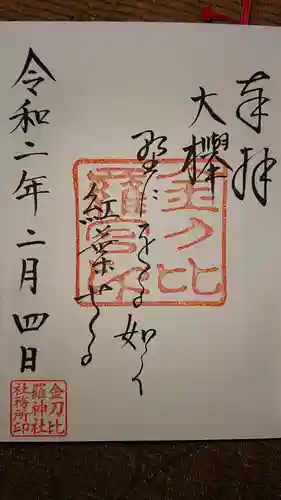 奉拝
大欅
如く
紅葉せる
令和二年二月四日
金刀比
金刀比
羅神社
社務所印